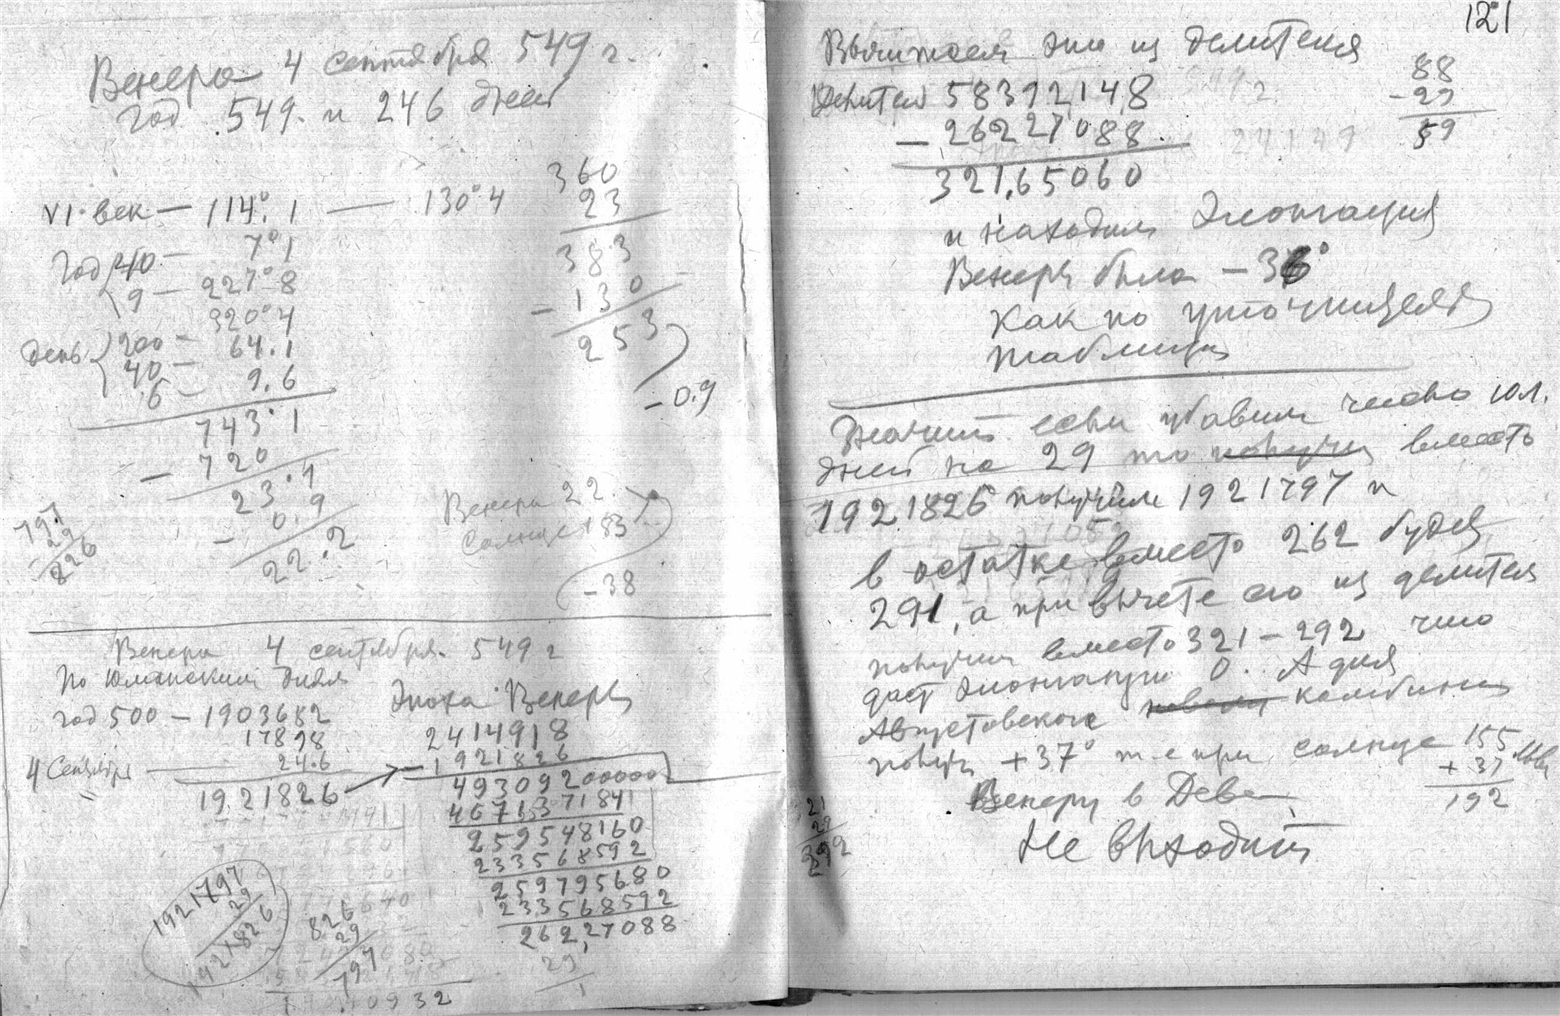 Венера 4 сентября 549 г.
Год 549. и 246 дней
VI век — 114°.1 — 130°4
Год 40 — 7°1
9 — 227°8
320°4
день 200 — 64.1
40 —
6 — 9.6
743.1
— 720
23.1
— 0.9
22.2
360
23
383
— 130
253
— 0.9
797
29
826
Венера 22
Солнце 183
— 38
Венера 4 сентября 549 г
По Юлианским дням
год 500 — 1903682
17898
4 Сентября — 246
1921826
Эпоха Венеры
2414918
— 1921826
49309200000
4671371841
259548160
233568592
259795680
233568592
262,27088
29
1921797
29
1921826
826
29
797
0932
121
Вычитаем это из делителя
Делител 58392148
— 26227088
321,65060
88
— 29
59
и находим Элонгация
Венеры была — 36°
Как по
таблицы
Значит если убавим число юл.
дней на 29 то получим вместо
1921826 получим 1921797 и
в остатке вместо 262 будет
291, а при вычете его из делителя
получим вместо 321 — 292 что
даст элонгацию 0. А для
Августовской комбинац
получ +37° т-е при солнце 155
+ 37
192
Венеру в Деве
Не выходит
21
29
292